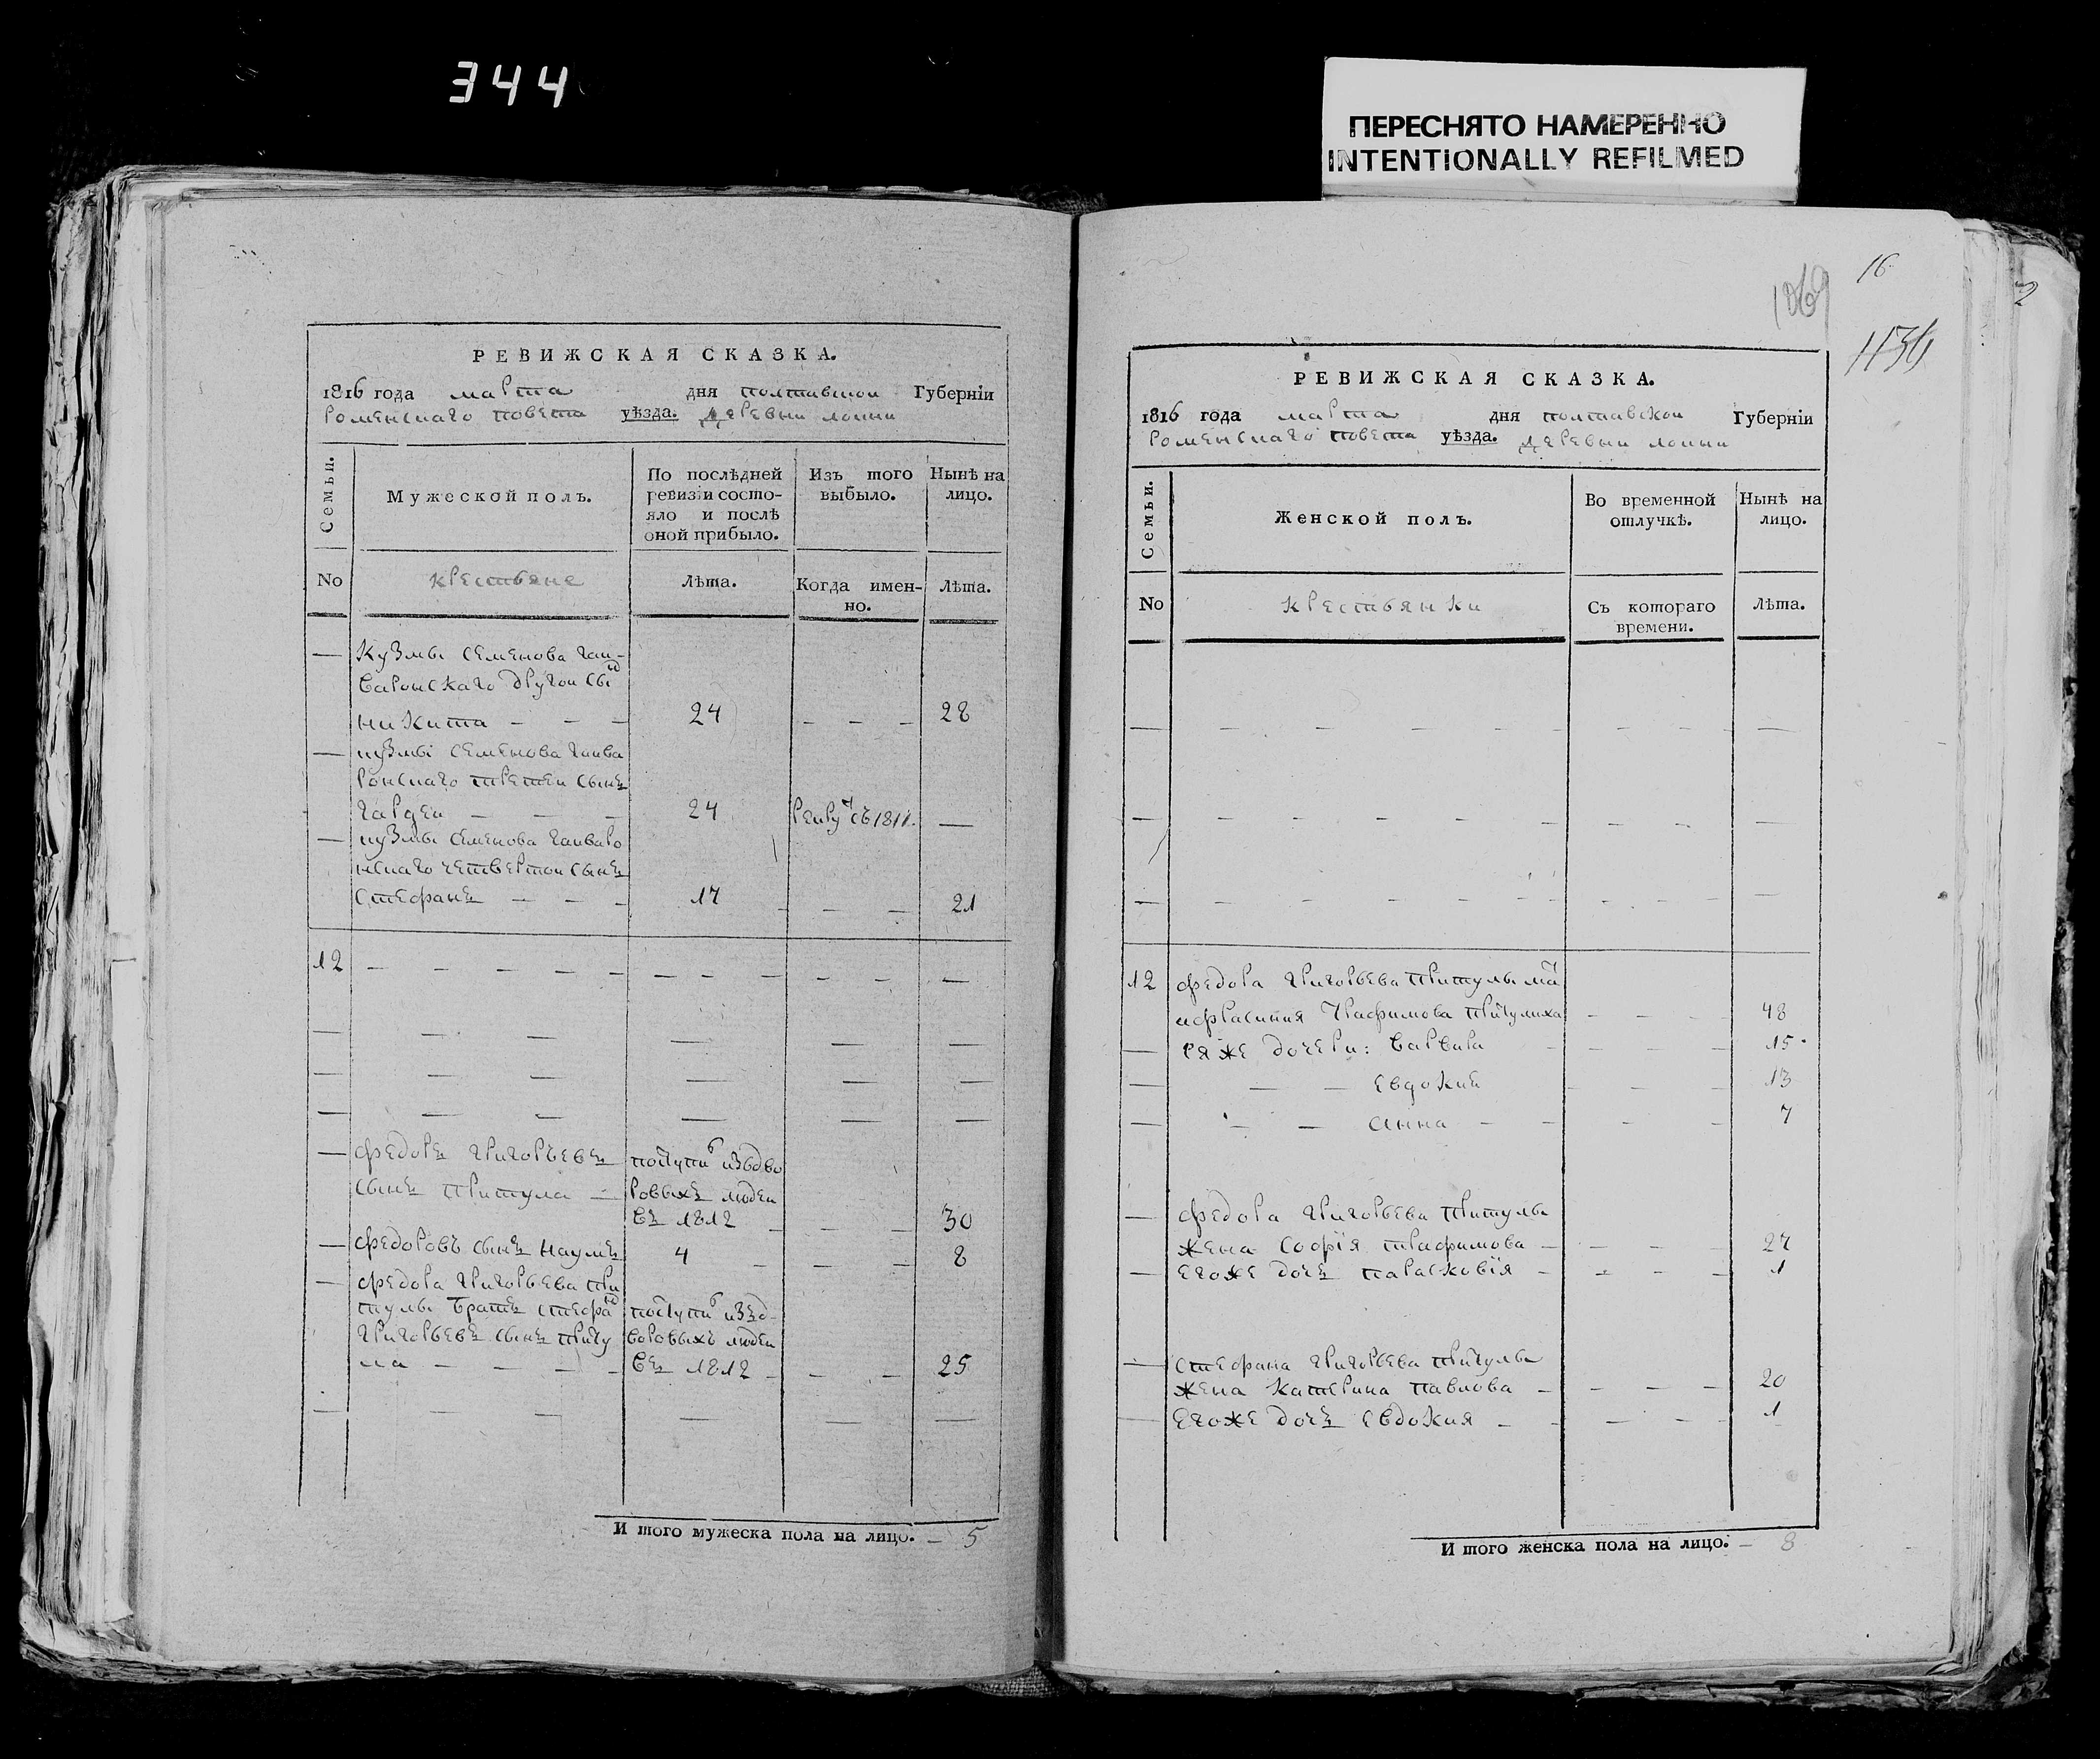 344
ПЕРЕСНЯТО НАМЕРЕННО
INTENTIONALLY REFILMED
РЕВИЖСКАЯ СКАЗКА.
1816 года марта дня полтавской Губерніи
роменскаго повета уѣзда. деревни
Семьи.
Мужеской полъ.
По послѣдней ревизіи состо-
яло и послѣ
оной прибыло.
Изъ того
выбыло.
Нынѣ на
лицо.
No
крестьяне
Лѣта.
Когда имен-
но.
Лѣта.
Кузмы Семенова Гай-
варонскаго другой сы
никита 24 28
кузмы Семенова Гайва
ронскаго третей сынъ
24
кузмы Семенова Гайваро
нскаго четвертой сынъ
Стефанъ 17 21
12
Федоръ Григорьевъ
сынъ притула
поступи изъ дво
ровыхъ людей
въ 1812 30
Федоровъ сынъ Наумъ 4 8
Федора Григорьева при
тулы братъ стефа
Григорьевъ сынъ приту
ла
поступи изъ д-
воровыхъ людей
въ 1812 25
И того мужеска пола на лицо. 5
16
1069
РЕВИЖСКАЯ СКАЗКА.
1816 года марта дня полтавской Губерніи
роменскаго повета уѣзда. деревни
Семьи.
Женской полъ.
Во временной
отлучкѣ.
Нынѣ на
лицо.
No
крестьянки
Съ котораго
времени.
Лѣта.
12 Федора Григорьева притулы ма
48
ея же дочери: варвара 15
Евдокия 13
Анна 7
Федора Григорьева притулы
жена Софія трафимова 27
Егоже дочь парасковія 1
Стефана Григорьева притулы
жена Катерина павлова 20
Егоже дочь евдокия 1
И того женска пола на лицо. 8